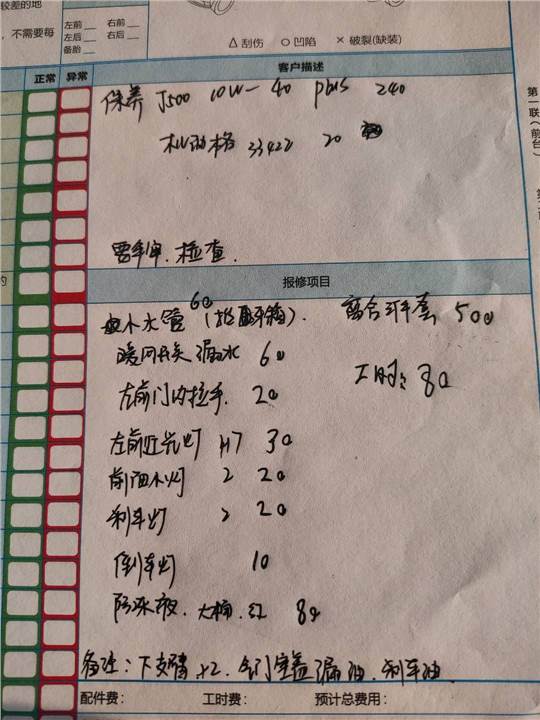 较差的地
，不需要每
左前 右前
左后 右后
备胎
△ 刮伤 ○ 凹陷 × 破裂(缺装)
正常 异常 客户描述
第一联(前台)
保养 J500 10W-40 Plus 240
机油格 33422 20
雷手审. 检查.
报修项目
小水管 60 离合 套 500
暖风开关 漏水 60
工时: 80
左前门内拉手. 20
左前近光灯 H7 30
前面小灯 2 20
刹车灯 2 20
倒车灯 10
防冻液. 大桶. 红 80
备注: 下支臂 x2. 气门室盖漏油. 刹车油.
配件费: 工时费: 预计总费用: